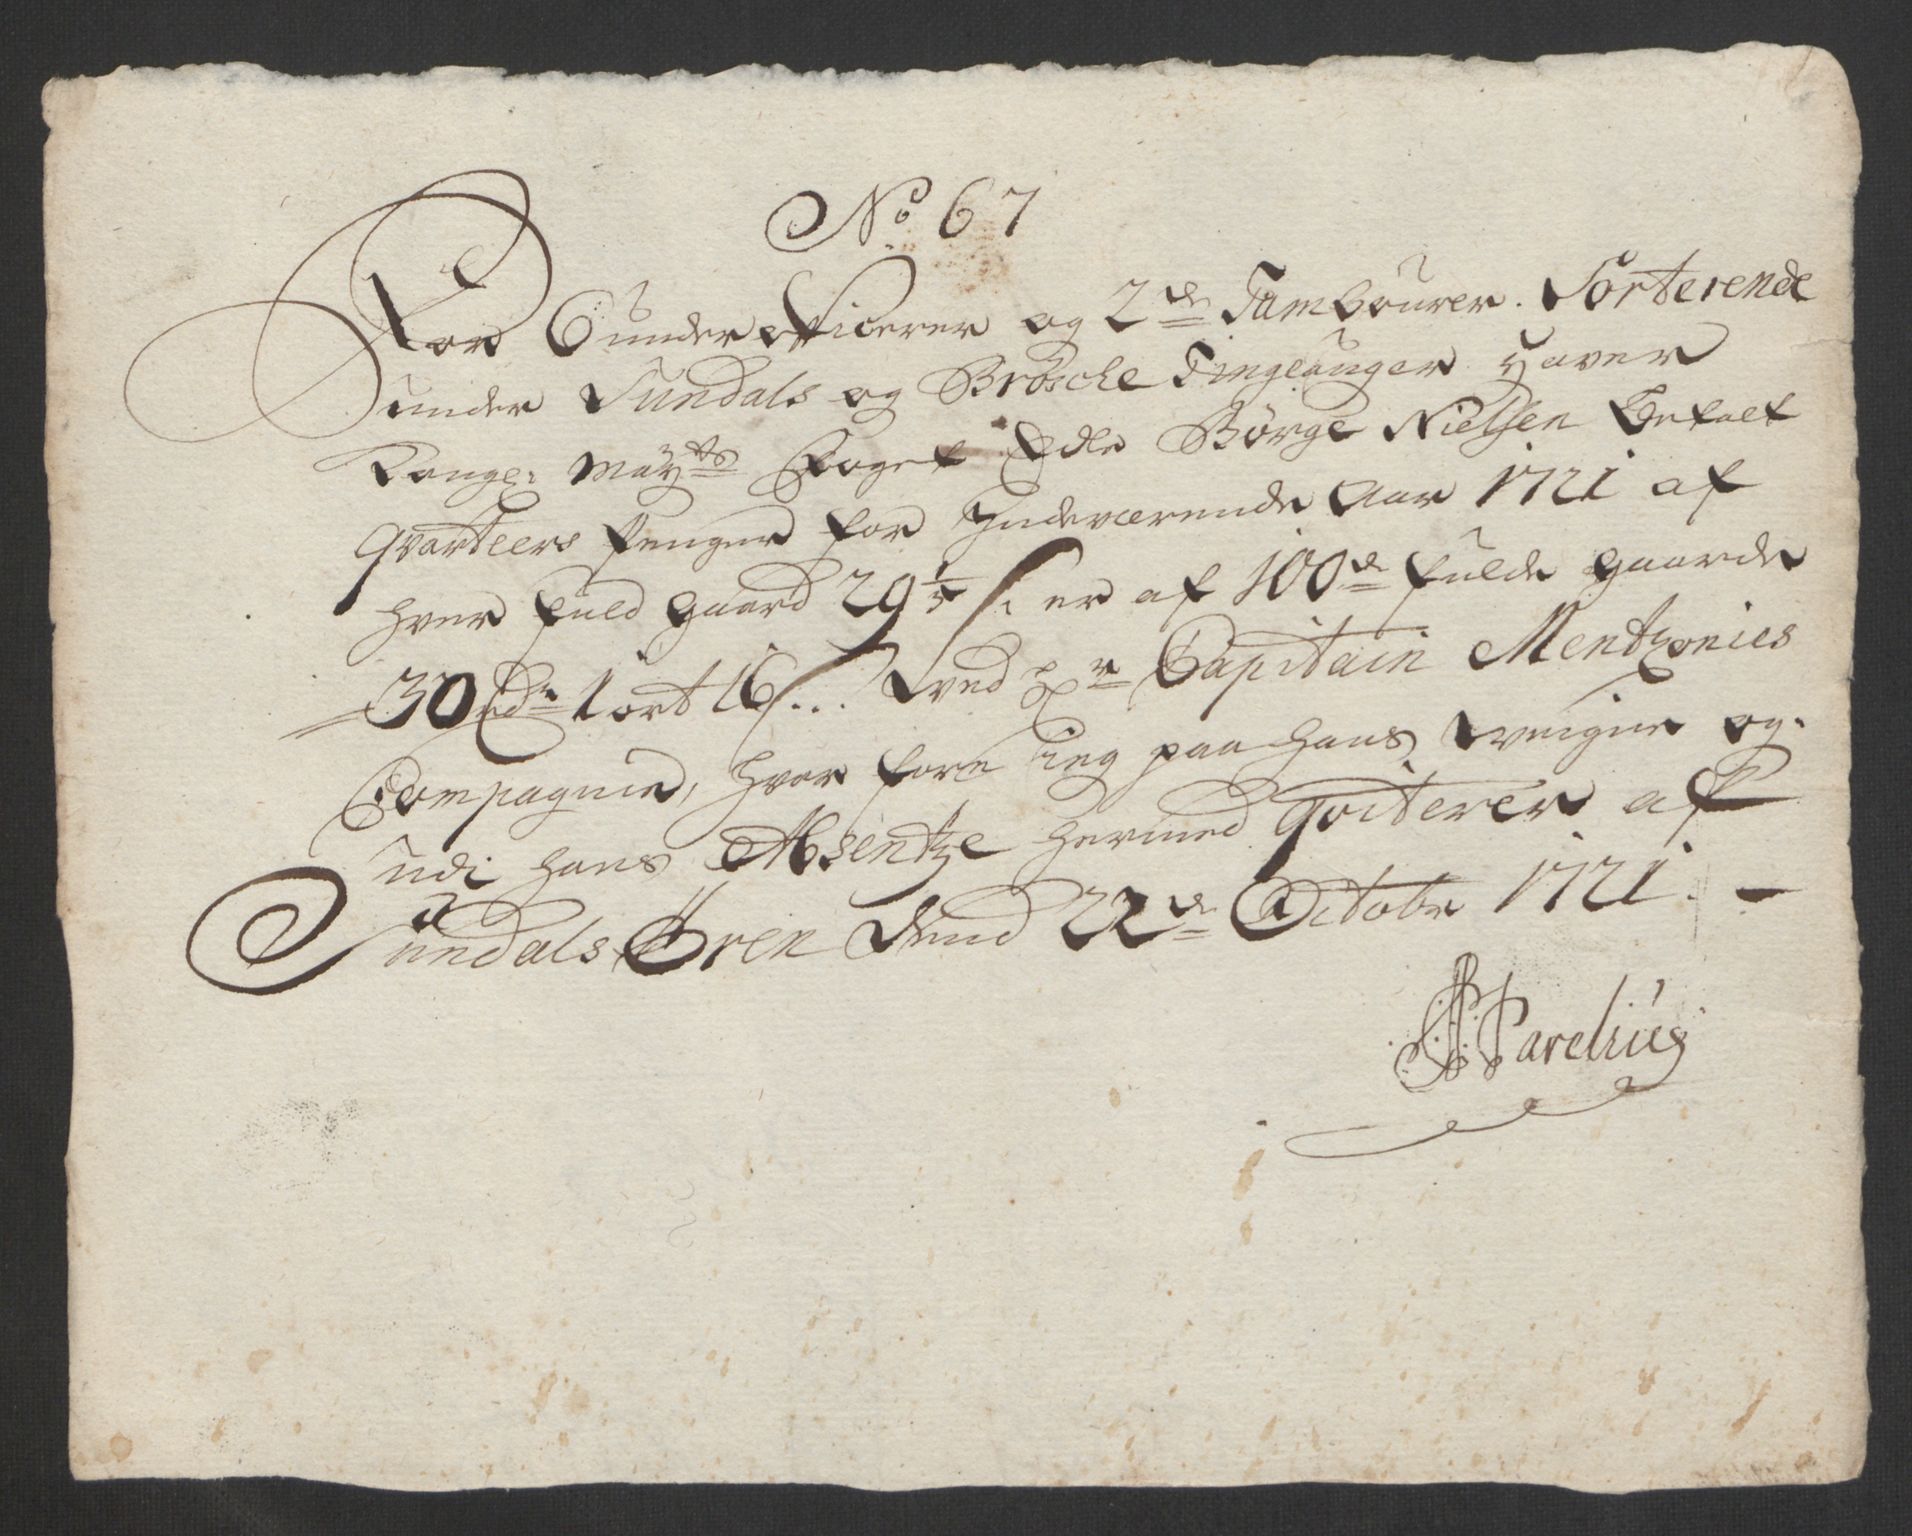 No 67
For 6 under officerer og 2de Tambourer. Sorterende
under Sundals og Brösche Tinglauger haver
Kongl: Mayts Foget Edle Börge Nielsen betalt
Qvarteers penger for Indeværende Aar 1721 af
hver fuld gaard 29 1/5 s: er af 100de fulde gaarde
30 rdr 1 ort 16 s... ved Hr Capitain Mentzonies
Compagnie, hvor fore ieg paa hans veigne og
udi hans Absentze hermed Qviterer af
Sundals Ören Dend 22de Octobr 1721. -
Parelius